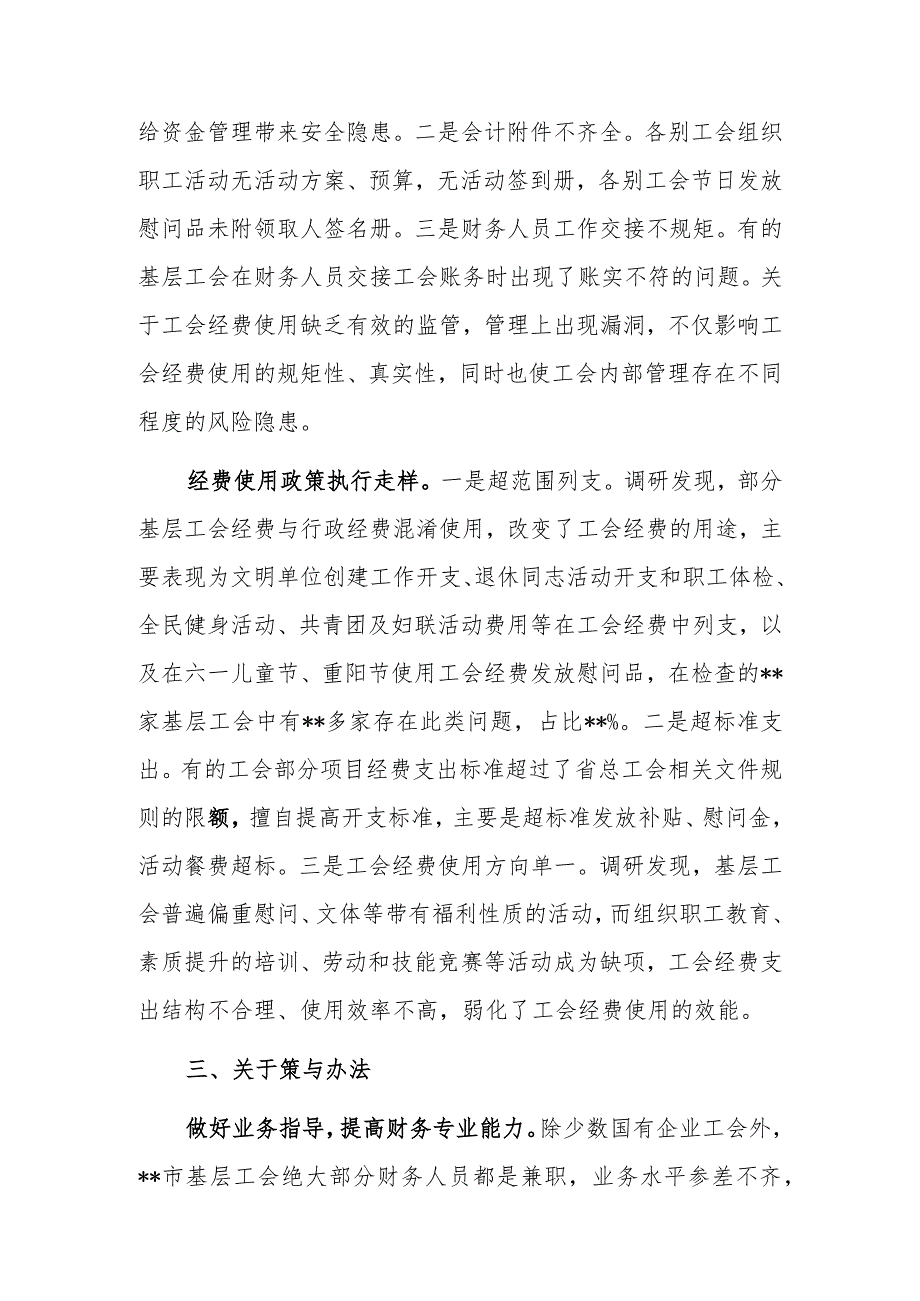 给资金管理带来安全隐患。二是会计附件不齐全。各别工会组织
职工活动无活动方案、预算，无活动签到册，各别工会节日发放
慰问品未附领取人签名册。三是财务人员工作交接不规矩。有的
基层工会在财务人员交接工会账务时出现了账实不符的问题。关
于工会经费使用缺乏有效的监管，管理上出现漏洞，不仅影响工
会经费使用的规矩性、真实性，同时也使工会内部管理存在不同
程度的风险隐患。
经费使用政策执行走样。一是超范围列支。调研发现，部分
基层工会经费与行政经费混淆使用，改变了工会经费的用途，主
要表现为文明单位创建工作开支、退休同志活动开支和职工体检、
全民健身活动、共青团及妇联活动费用等在工会经费中列支，以
及在六一儿童节、重阳节使用工会经费发放慰问品，在检查的**
家基层工会中有**多家存在此类问题，占比**%。二是超标准支
出。有的工会部分项目经费支出标准超过了省总工会相关文件规
则的限额，擅自提高开支标准，主要是超标准发放补贴、慰问金，
活动餐费超标。三是工会经费使用方向单一。调研发现，基层工
会普遍偏重慰问、文体等带有福利性质的活动，而组织职工教育、
素质提升的培训、劳动和技能竞赛等活动成为缺项，工会经费支
出结构不合理、使用效率不高，弱化了工会经费使用的效能。
三、关于策与办法
做好业务指导，提高财务专业能力。除少数国有企业工会外，
**市基层工会绝大部分财务人员都是兼职，业务水平参差不齐，